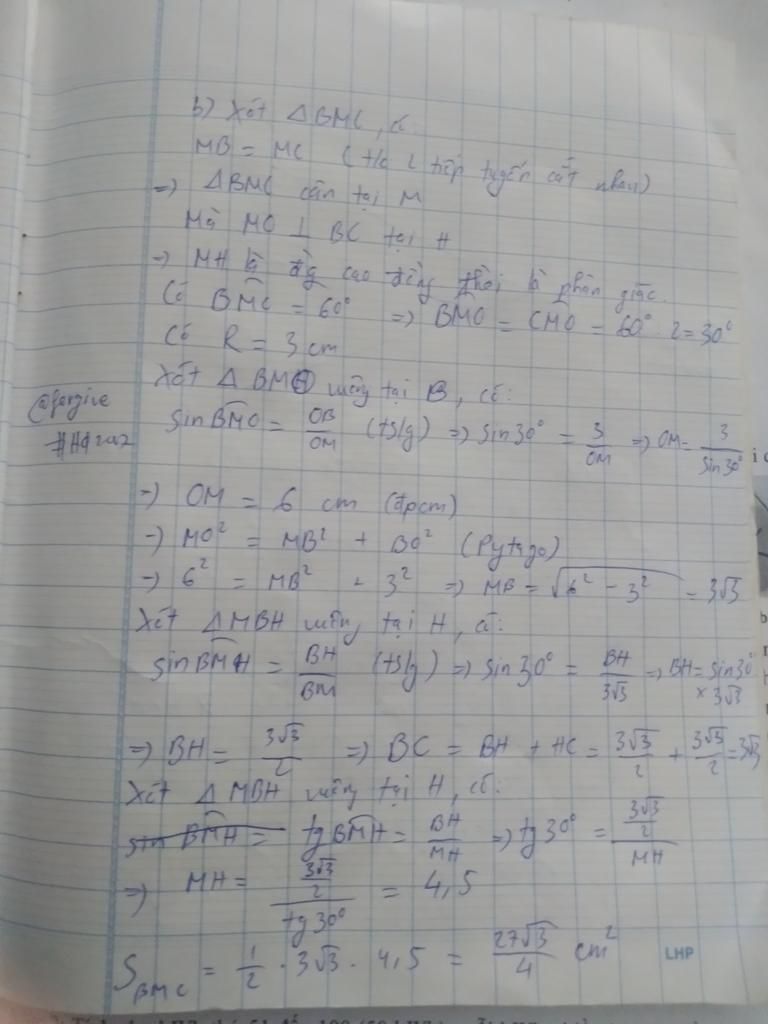 b) Xét △BMC, có:
MB = MC (t/c 2 tiếp tuyến cắt nhau)
=> △BMC cân tại M
Mà MO ⊥ BC tại H
=> MH là đg cao đồng thời là phân giác.
Có BMC = 60° => BMO = CMO = 60° : 2 = 30°
Có R = 3 cm
Xét △ BMO vuông tại B, có:
sin BMO = OB/OM (tslg) => sin 30° = 3/OM => OM = 3/sin 30°
=> OM = 6 cm (đpcm)
=> MO² = MB² + BO² (Pytago)
=> 6² = MB² + 3² => MB = √(6² - 3²) = 3√3
Xét △MBH vuông tại H, có:
sin BMH = BH/BM (tslg) => sin 30° = BH/3√3 => BH = sin 30°
× 3√3
=> BH = 3√3/2 => BC = BH + HC = 3√3/2 + 3√3/2 = 3√3
Xét △ MBH vuông tại H, có:
sin BMH = tg BMH = BH/MH => tg 30° = (3√3/2)/MH
=> MH = (3√3/2)/tg 30° = 4,5
S BMC = 1/2 · 3√3 · 4,5 = 27√3/4 cm²
LHP